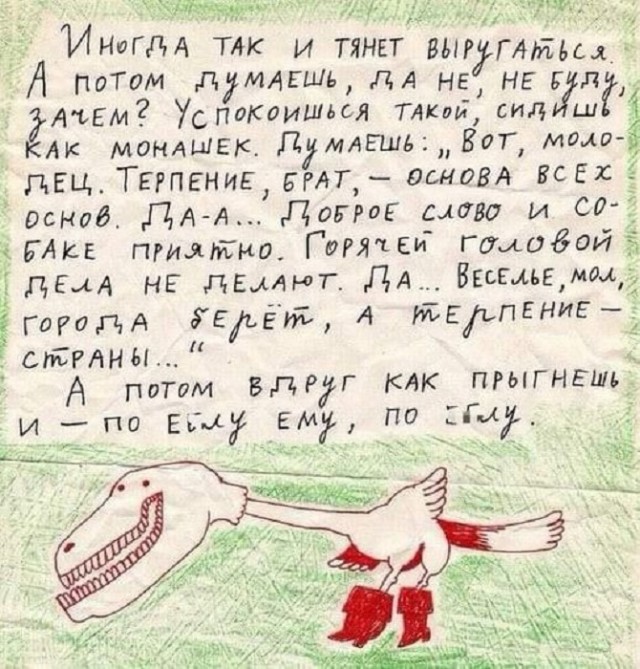 Иногда так и тянет выругаться.
А потом думаешь, да не, не буду,
зачем? Успокоишься такой, сидишь
как монашек. Думаешь: „Вот, моло-
дец. Терпение, брат, – основа всех
основ. Да-а... Доброе слово и со-
баке приятно. Горячей головой
дела не делают. Да... Веселье, мол,
города берёт, а терпение –
страны..."
А потом вдруг как прыгнешь
и – по ему, по